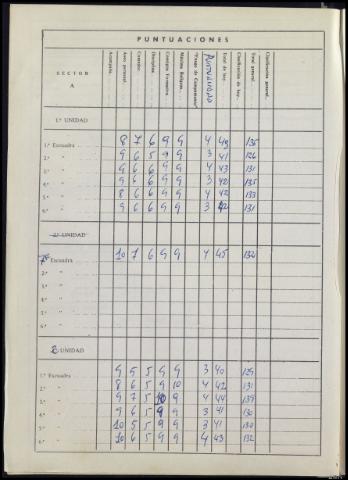 PUNTUACIONES
SECTOR A Acampada. Aseo personal. Comedor. Disciplina. Consejos Formativos. Máximo Esfuerzo. "Fuego de Campamento" PUNTUALIDAD Total de hoy. Clasificación de hoy. Total general. Clasificación general.
1.ª UNIDAD
1.ª Escuadra 8 7 6 9 9 4 43 135
2.ª " 9 6 5 9 9 3 41 126
3.ª " 9 6 6 9 9 4 43 131
4.ª " 9 6 6 9 9 3 42 135
5.ª " 8 6 6 9 9 4 42 133
6.ª " 9 6 6 9 9 3 42 131
2.ª UNIDAD
7ª Escuadra 10 7 6 9 9 4 45 132
2.ª "
3.ª "
4.ª "
5.ª "
6.ª "
2 UNIDAD
1.ª Escuadra 9 5 5 9 9 3 40 129
2.ª " 8 6 5 9 10 4 42 131
3.ª " 9 7 5 10 9 4 44 139
4.ª " 9 6 5 9 9 3 41 130
5.ª " 10 5 5 9 9 3 41 130
6.ª " 10 6 5 9 9 4 43 132